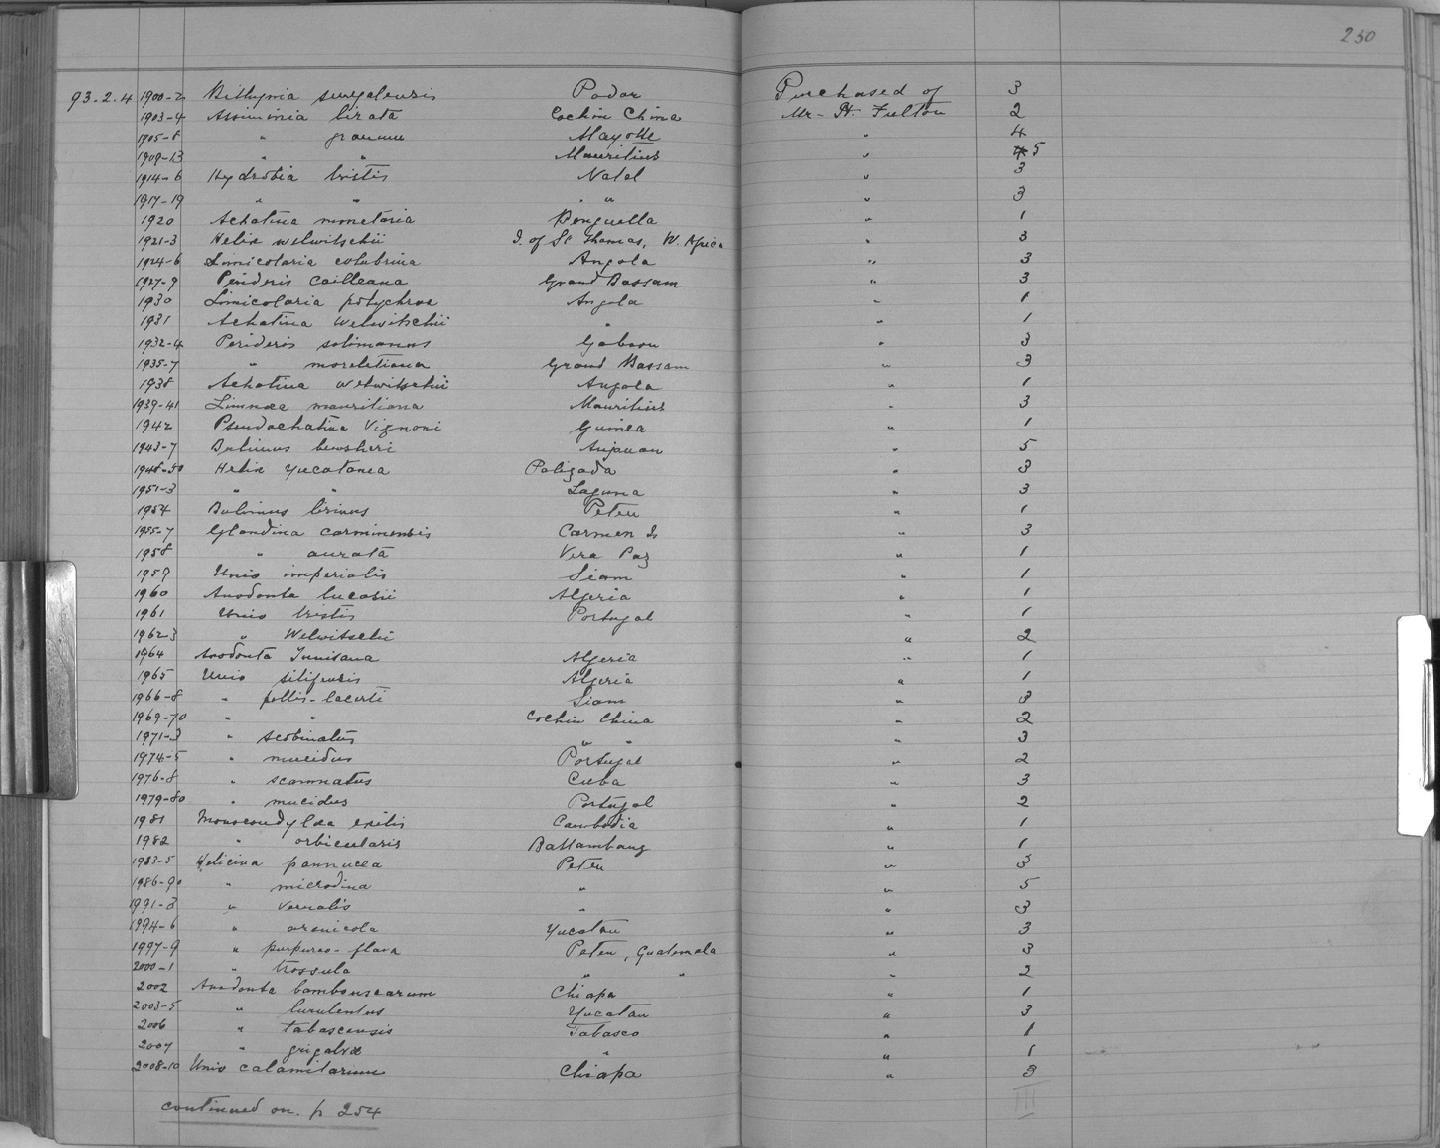 250
93.2.4 1900-2 Bithynia senegalensis Podor Purchased of 3
1903-4 Assiminia lirata Cochin China Mr. H. Fulton 2
1905-8 " granum Mayotte " 4
1909-13 " " Mauritius " 5
1914-6 Hydrobia tristis Natal " 3
1917-19 " " " " " 3
1920 Achatina monetaria Benguella " 1
1921-3 Helix welwitschii I. of St Thomas, W. Africa " 3
1924-6 Limicolaria colubrina Angola " 3
1927-9 Perideris cailleana Grand Bassam " 3
1930 Limicolaria polychroa Angola " 1
1931 Achatina Welwitschii " " 1
1932-4 Perideris solimanus Gaboon " 3
1935-7 " moreletiana Grand Bassam " 3
1938 Achatina Welwitschii Angola " 1
1939-41 Limnæa mauritiana Mauritius " 3
1942 Pseudachatina Vignoni Guinea " 1
1943-7 Bulimus bewsheri Anjouan " 5
1948-50 Helix yucatanea Palizada " 3
1951-3 " " Laguna " 3
1954 Bulimus Peten " 1
1955-7 Glandina carminensis Carmen Is " 3
1958 " aurata Vera Paz " 1
1959 Unio imperialis Siam " 1
1960 Anodonta lucasii Algeria " 1
1961 Unio tristis Portugal " 1
1962-3 " Welwitschii " 2
1964 Anodonta Tunisana Algeria " 1
1965 Unio sitifensis Algeria " 1
1966-8 " pellis-lacerti Siam " 3
1969-70 " " Cochin China " 2
1971-3 " scobinatus " " " 3
1974-5 " mucidus Portugal " 2
1976-8 " scamnatus Cuba " 3
1979-80 " mucidus Portugal " 2
1981 Monocondylæa exilis Cambodia " 1
1982 " orbicularis Battambang " 1
1983-5 Helicina pannucea Peten " 3
1986-90 " microdina " " 5
1991-3 " vernalis " " 3
1994-6 " arenicola Yucatan " 3
1997-9 " purpureo-flava Peten, Guatemala " 3
2000-1 " trossula " " " 2
2002 Anodonta bambousearum Chiapa " 1
2003-5 " lurulentus Yucatan " 3
2006 " tabascensis Tabasco " 1
2007 " grijalvæ " " 1
2008-10 Unio calamitarum Chiapa " 3
III
continued on. p 254